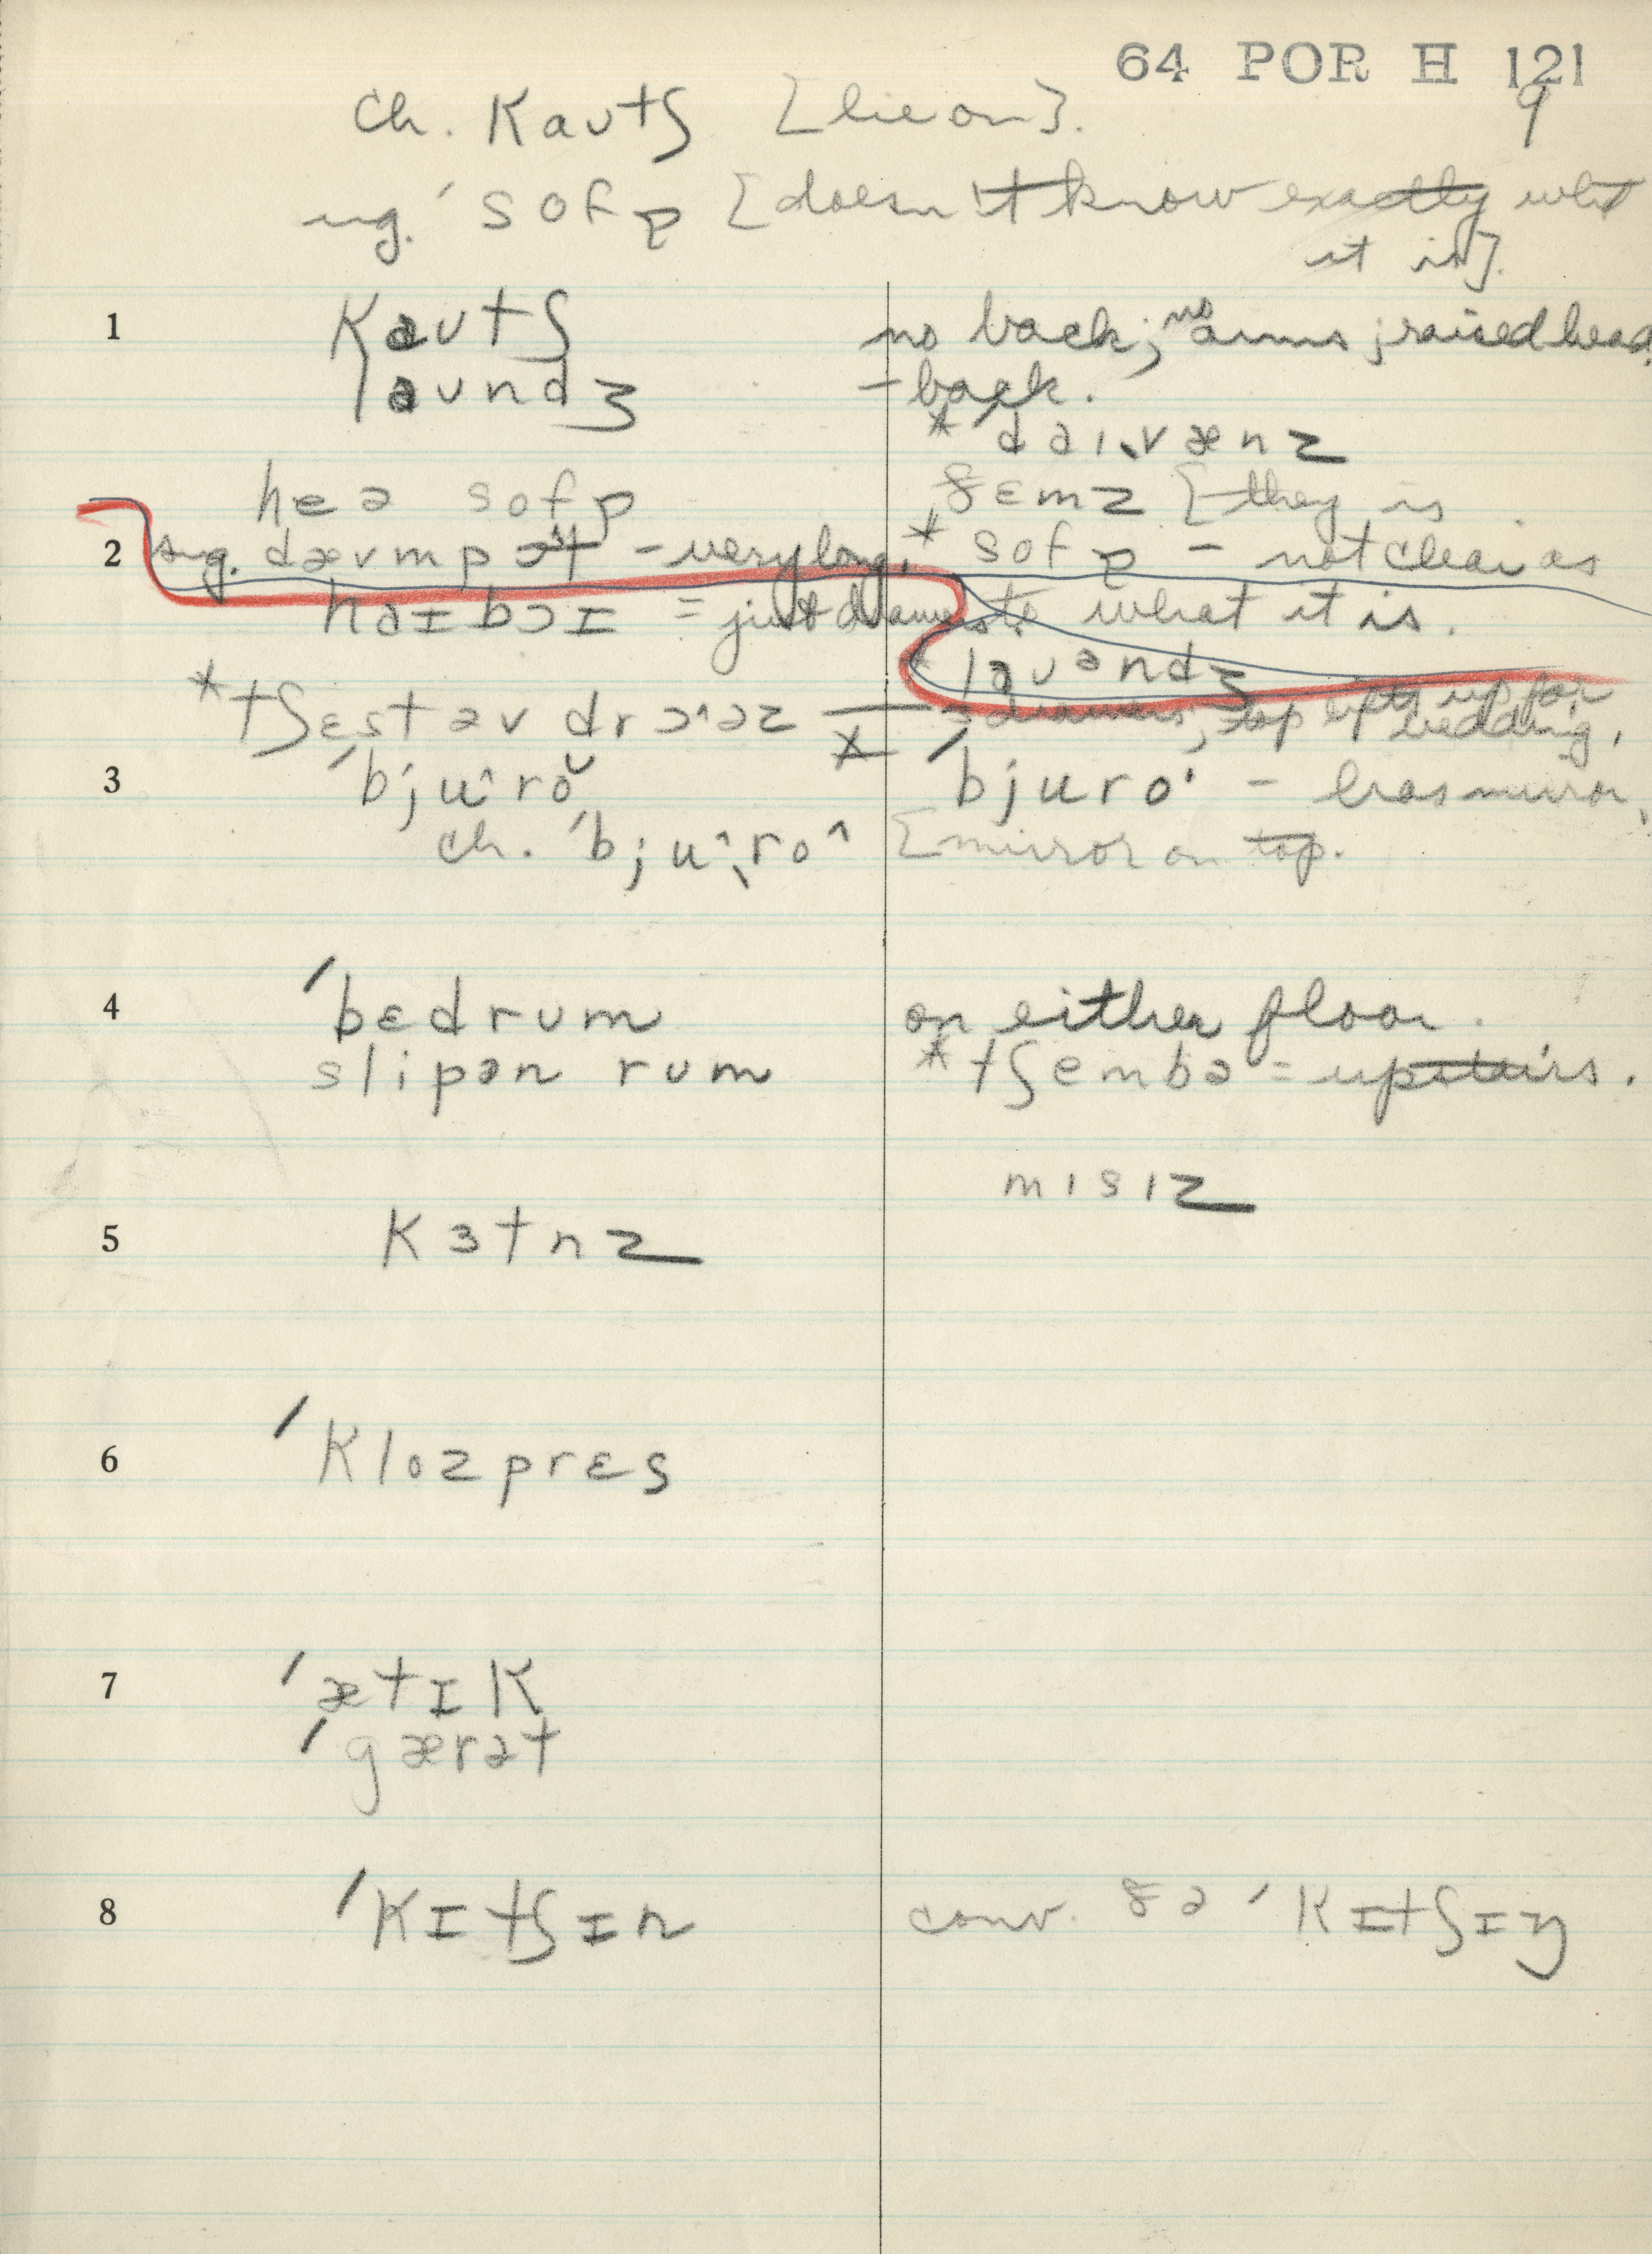 64 POR H 121
9
ch. kaʊtʃ [lie on].
ug. ˈsofɒ [doesn't know exactly what
it is].
1 kaʊtʃ no back; no arms; raised head
laʊndʒ -back.
* ˈdaɪˌvænz
hɛə sofɒ ðɛmz [they is
2 sug. dævmpɔt - very long. * sofɒ - not clear as
haɪbɔɪ = just drawers to what it is.
* laʊəndʒ
* tʃɛst əv drɔˑəz = drawers; top lifts up for
bedding.
3 ˈbjuˑrŏ * ˈbjuroˑ - has mirror.
ch. ˈbjuˑˌroˑ [mirror on top.
4 ˈbɛdrum on either floor.
slipən rum * tʃembə = upstairs.
mɪsɪz
5 kɜtnz
6 ˈklozprɛs
7 ˈætɪk
ˈgærət
8 ˈkɪtʃɪn conv. ðə ˈkɪtʃɪŋ